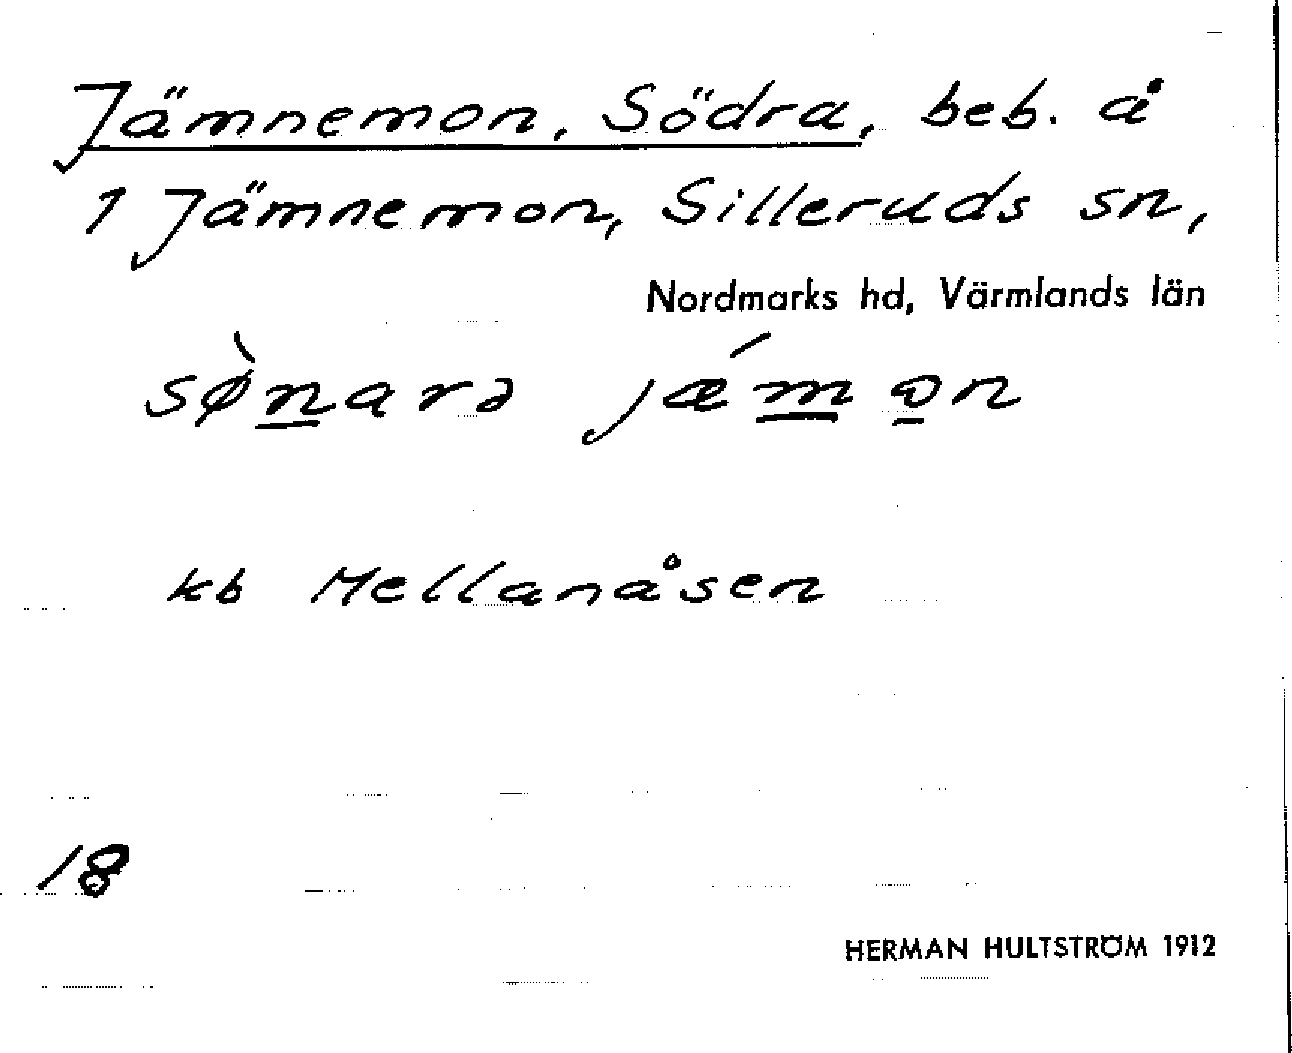 Jämnemon, Södra, beb. å
1 Jämnemon, Silleruds sn,
Nordmarks hd, Värmlands län
sø̀narə jǽmon
kb Mellanåsen
18
HERMAN HULTSTRÖM 1912